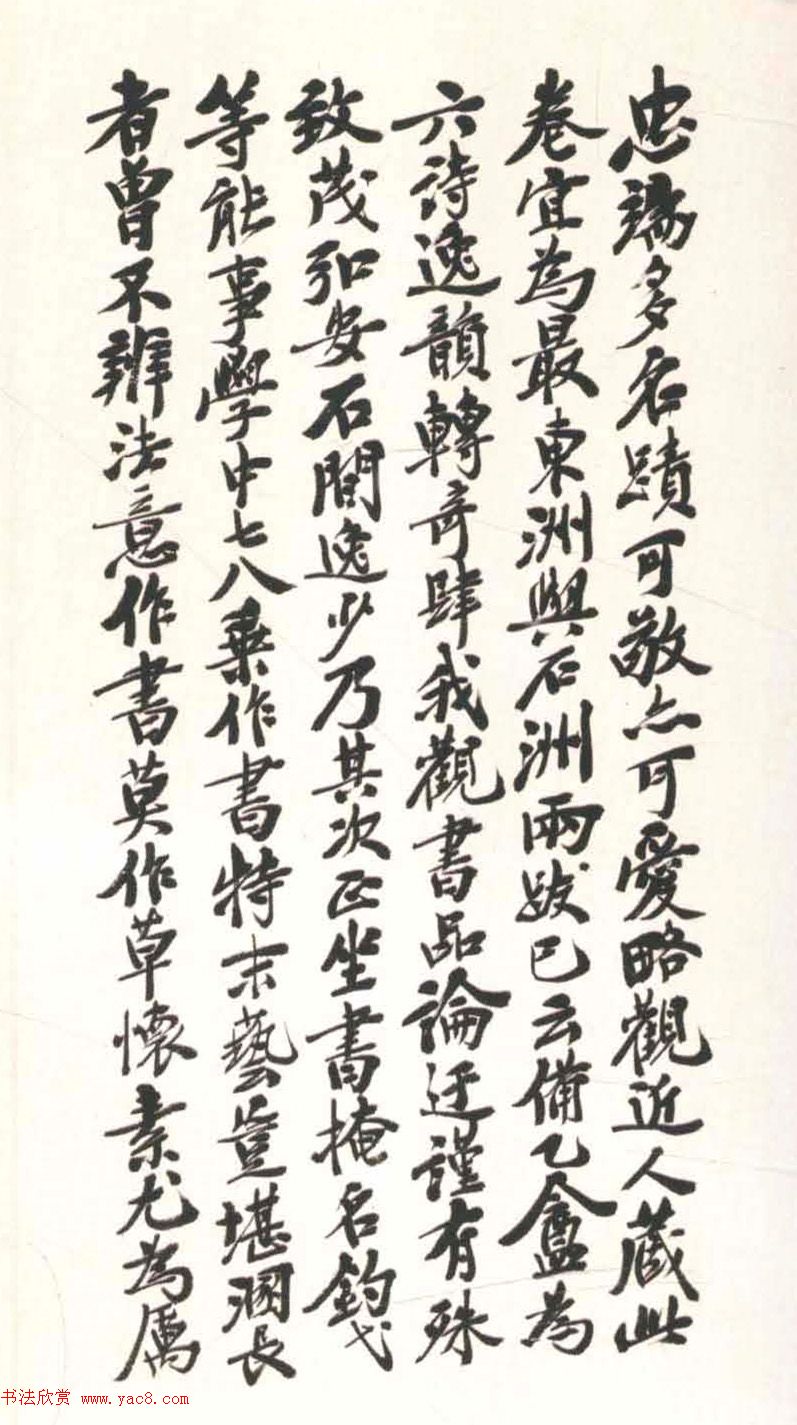 忠端多名蹟可敬亦可愛略觀近人藏此
卷宜為最東洲與石洲兩跋已云備乙盦為
六詩逸韻轉奇肆我觀書品論迂謹有殊
致茂弘安石間逸少乃其次正坐書掩名釣弋
等能事學中七八乘作書特末藝豈堪溷長
者曾不辨法意作書莫作草懷素尤為厲
书法欣赏 www.yac8.com